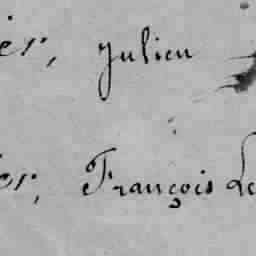 er, Julien
er, François Le